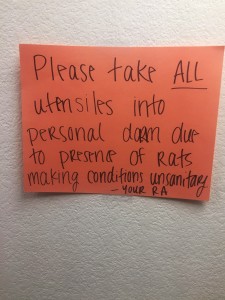 Please take ALL
utensiles into
personal dorm due
to presence of rats
making conditions unsanitary
- YOUR RA